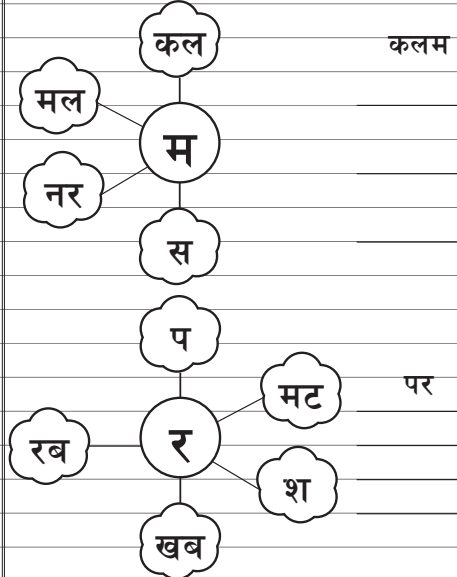 कल
कलम
मल
म
नर
स
प
मट
पर
रब
र
श
खब